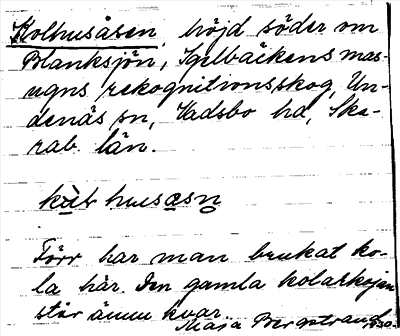 Kolhusåsen, höjd söder om
Blanksjön, Igelbäckens mas-
ugns rekognitionsskog, Un-
denäs sn, Vadsbo hd, Ska-
rab. län.
husasn
Förr har man brukat ko-
la här. Den gamla kolarkojan
står ännu kvar.
Maja Bergstrand